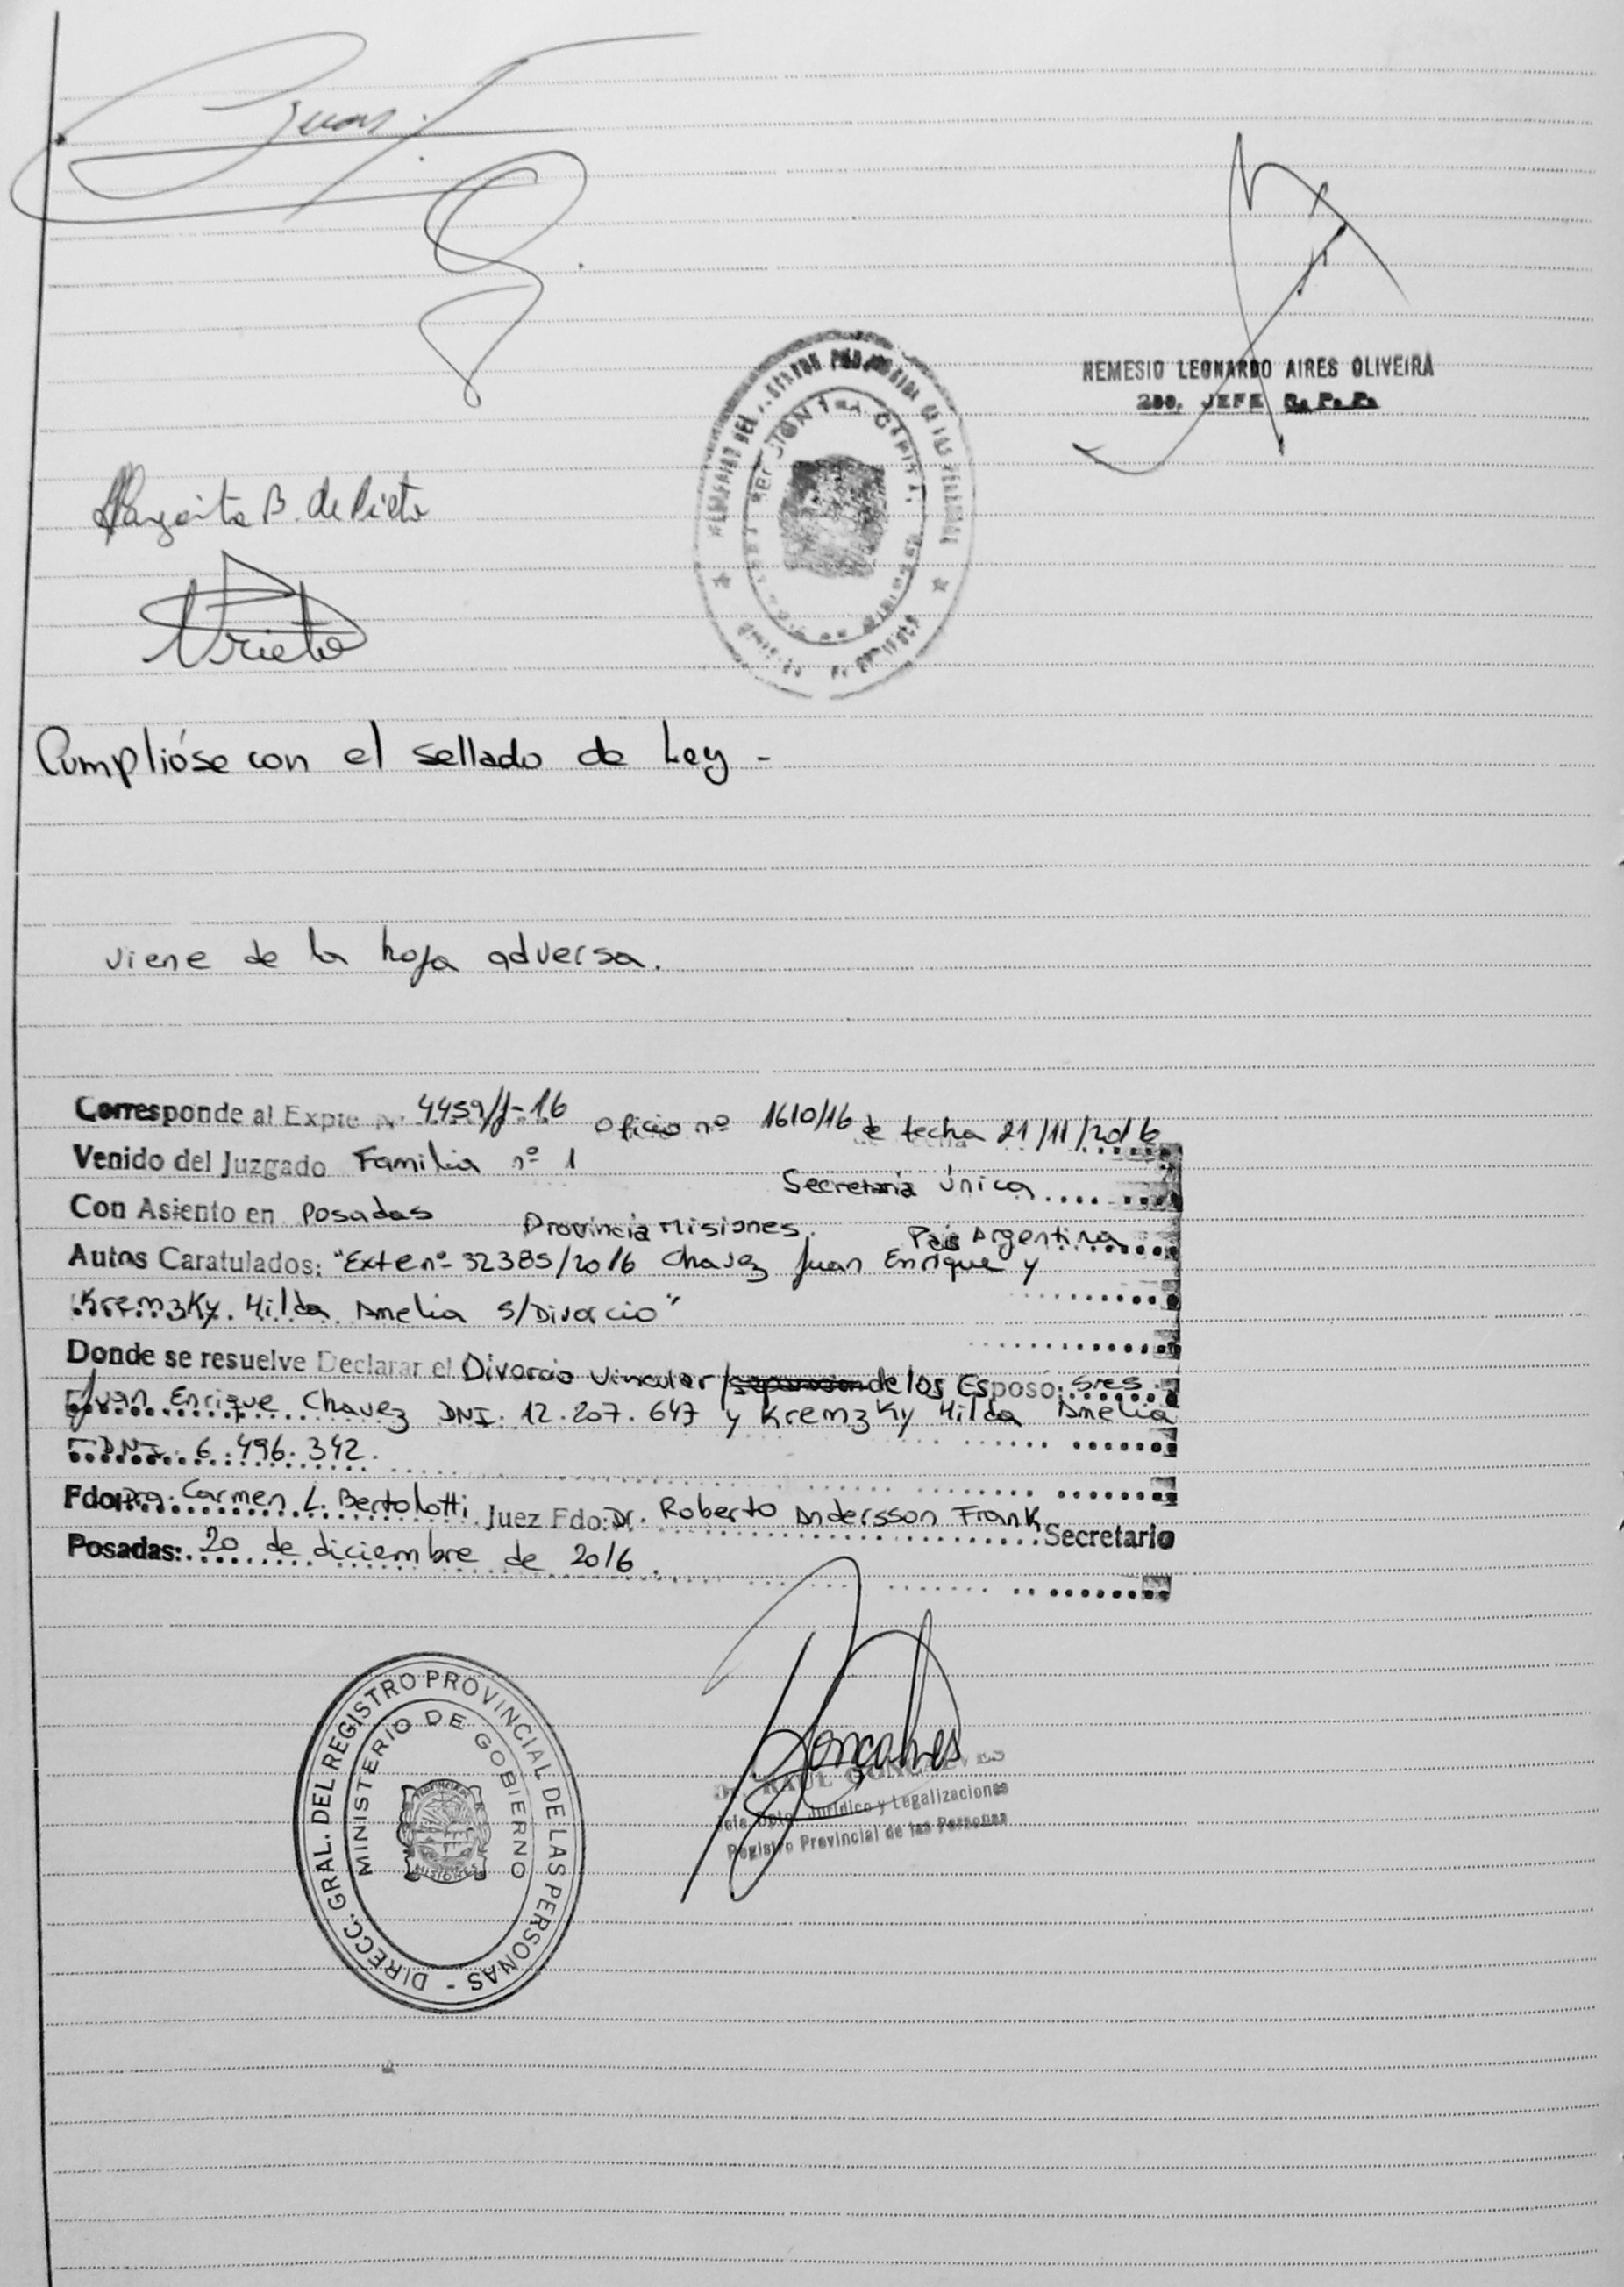 NEMESIO LEONARDO AIRES OLIVEIRA
2do. JEFE R.P.P.
Margarita B. de Prieto
Prieto
Cumplióse con el sellado de Ley -
viene de la hoja adversa.
Corresponde al Expte Nº 4459/J-16 Oficio nº 1610/16 de fecha 21/11/2016
Venido del Juzgado Familia nº 1 Secretaria Única
Con Asiento en Posadas Provincia Misiones. País Argentina
Autos Caratulados: "Exte nº 32385/2016 Chavez Juan Enrique y
Kremzky. Hilda Amelia S/Divorcio"
Donde se resuelve Declarar el Divorcio Vincular / separacion de los Esposo: sres
Juan Enrique Chavez DNI. 12.207.647 y Kremzky Hilda Amelia
DNI. 6.496.342.
Fdo: Dra. Carmen L. Bertolotti Juez Fdo: Dr. Roberto Andersson Frank Secretario
Posadas: 20 de diciembre de 2016.
DIRECC. GRAL. DEL REGISTRO PROVINCIAL DE LAS PERSONAS -
MINISTERIO DE GOBIERNO
MISIONES
Dr. RAUL GONCALVES
Jefe Dpto. Jurídico y Legalizaciones
Registro Provincial de las Personas